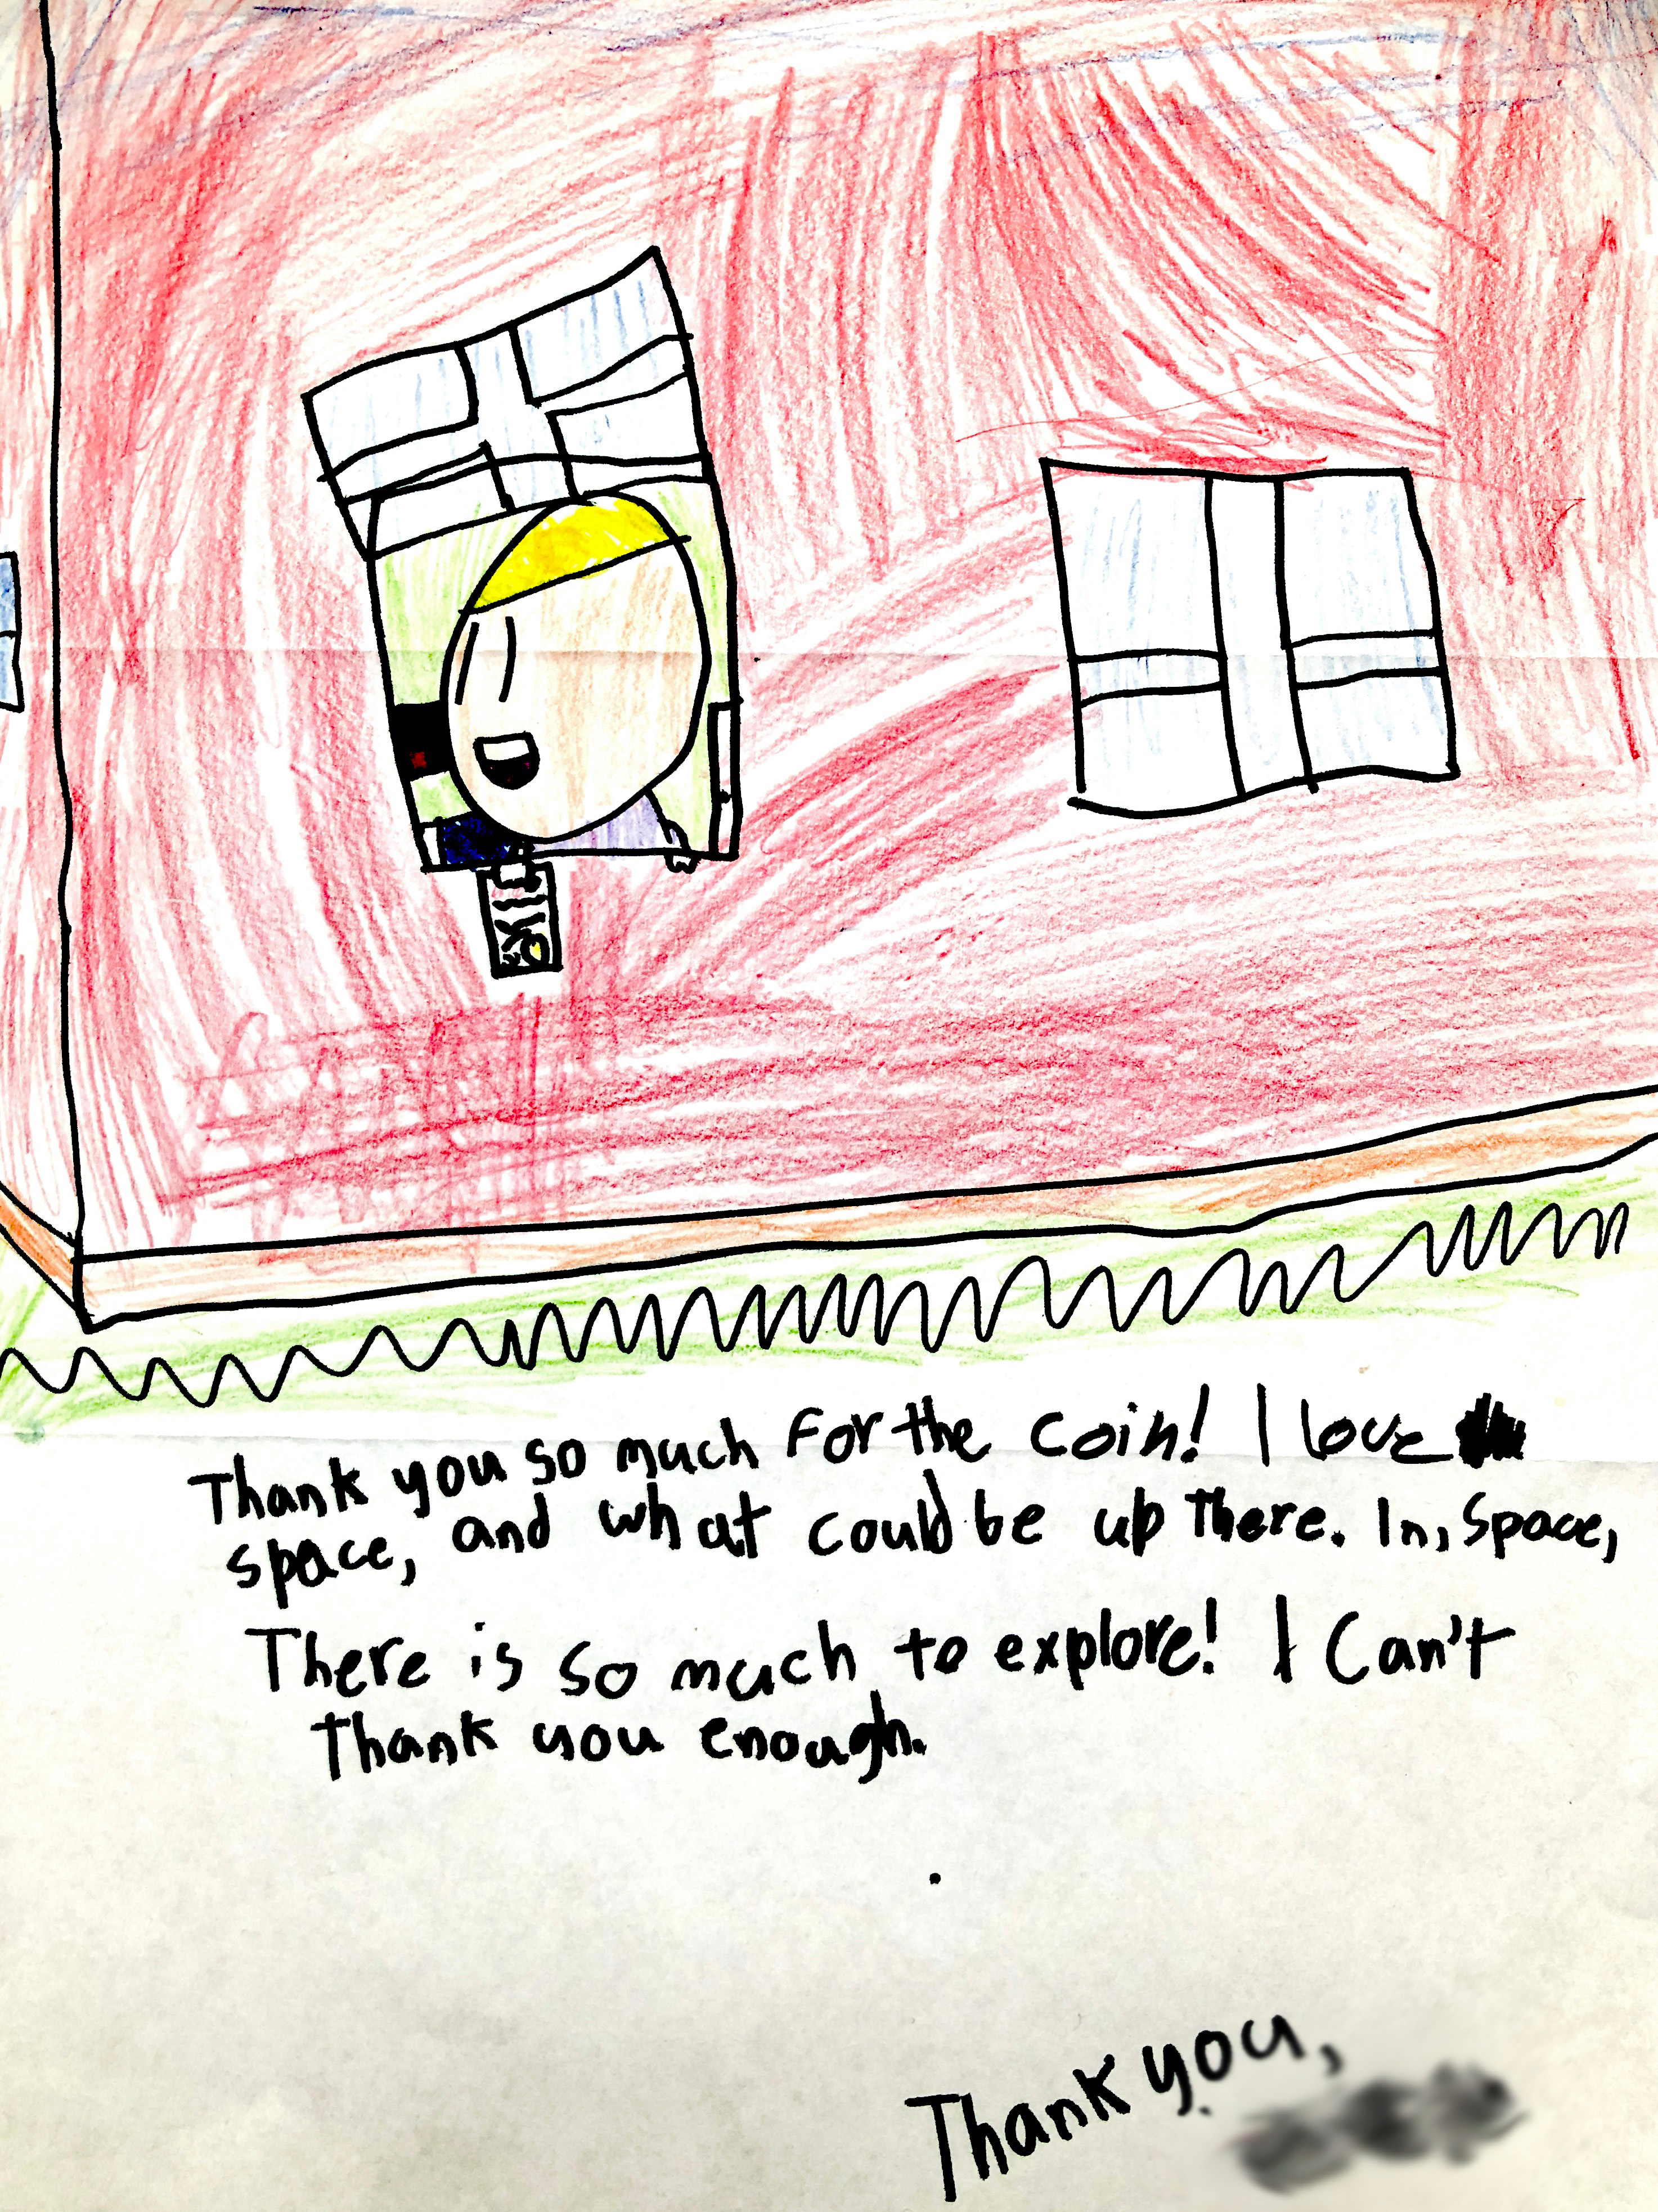 Thank you so much For the coin! I love
space, and what could be up There. In, Space,
There is so much to explore! I Can't
Thank you enough.
Thank you,